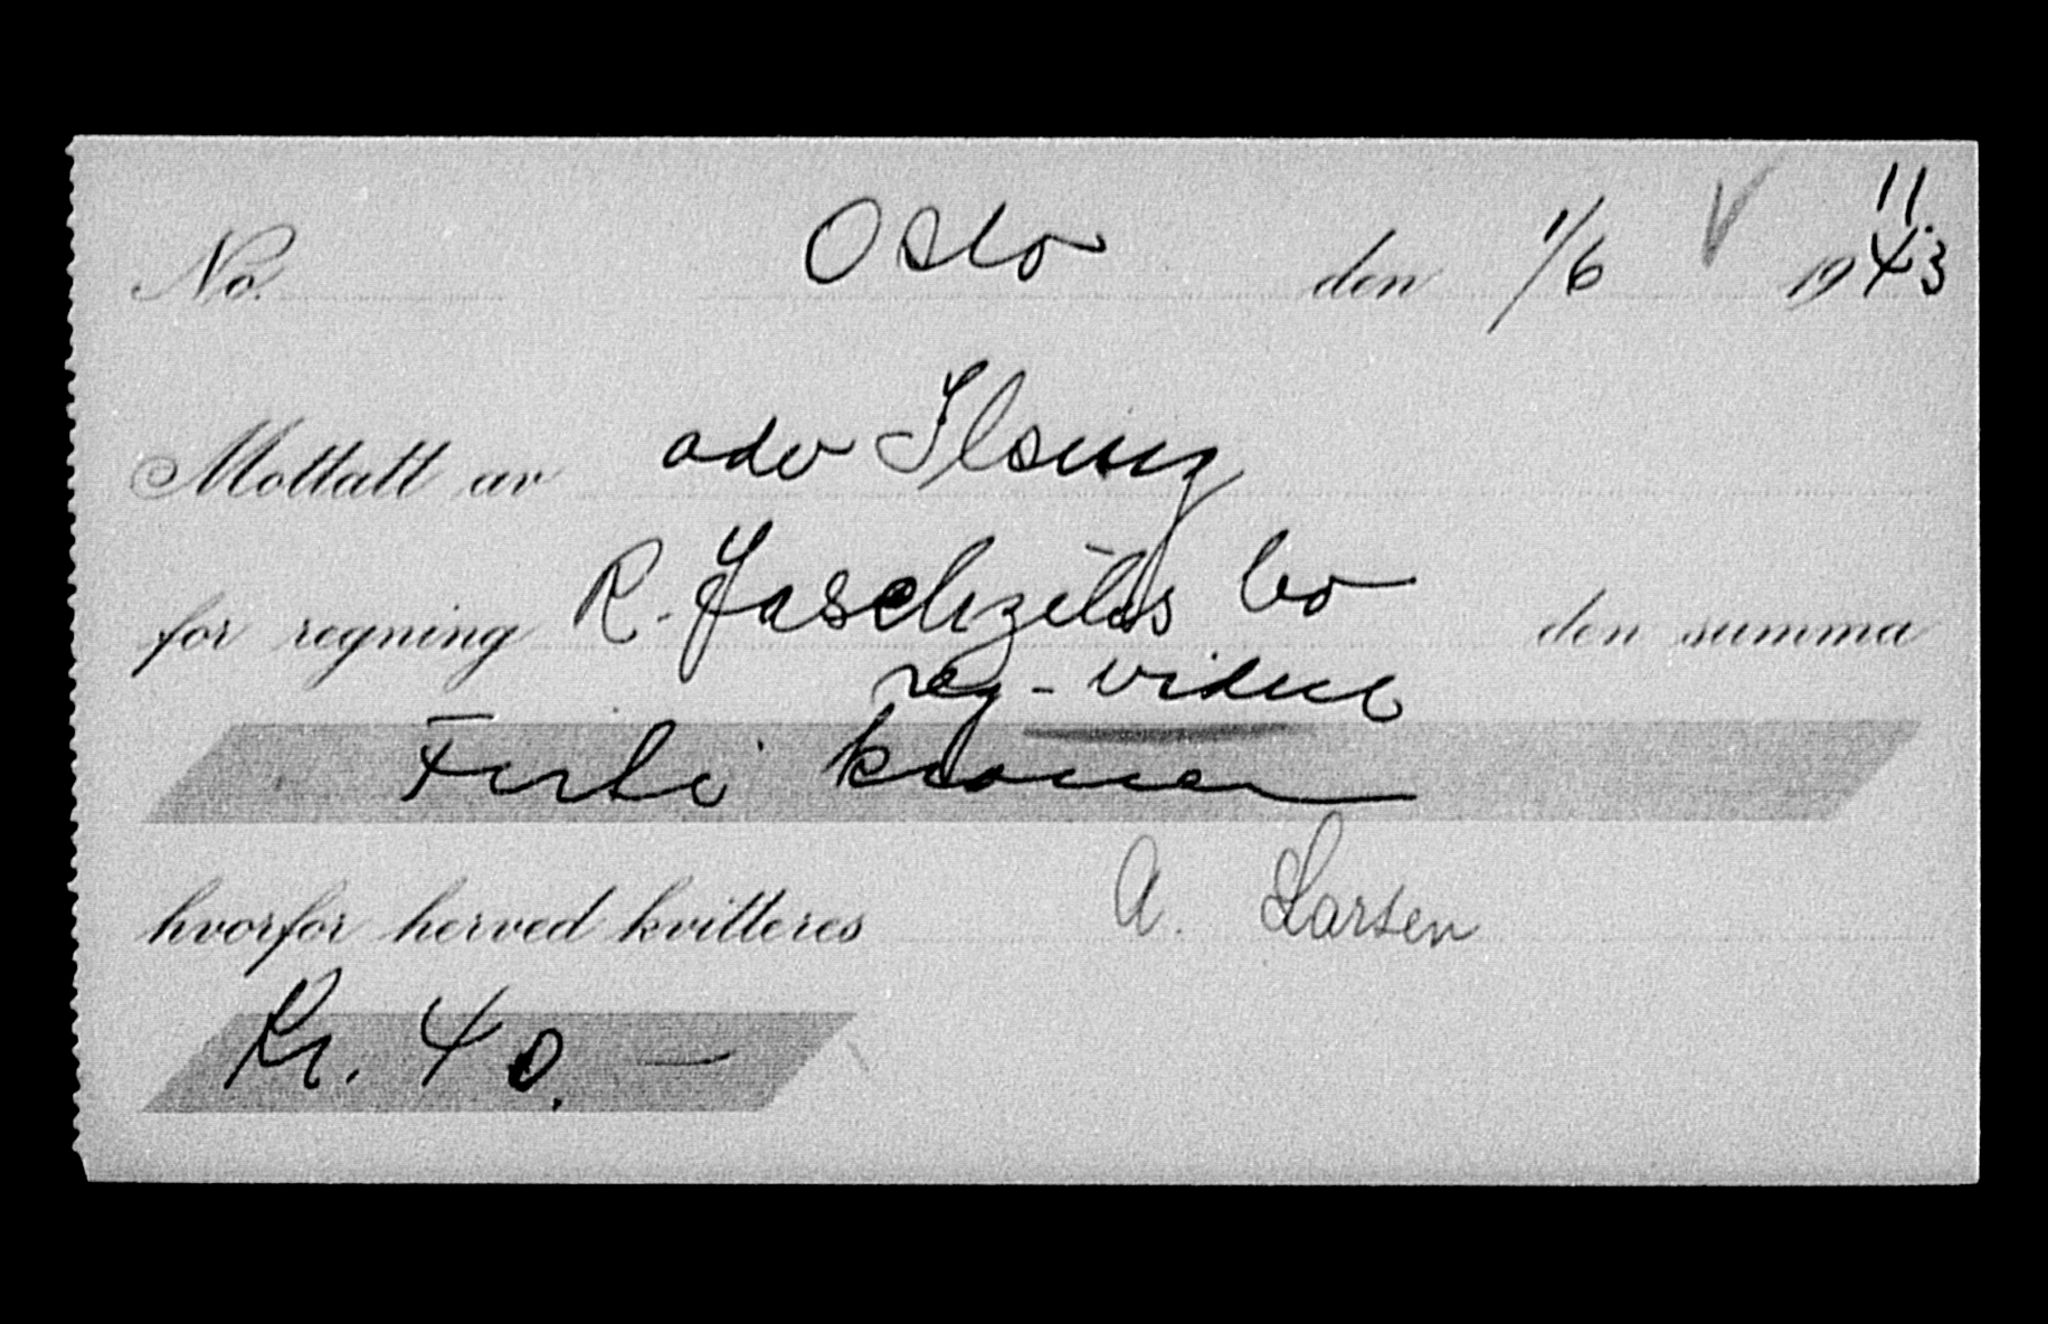 11.
No. Oslo den 1/6 1943
Mottatt av adv Ilsung
for regning R. Jaschzeks bo den summa
reg - vidne
Førti kroner
hvorfor herved kvitteres A. Larsen
Kr. 40.-